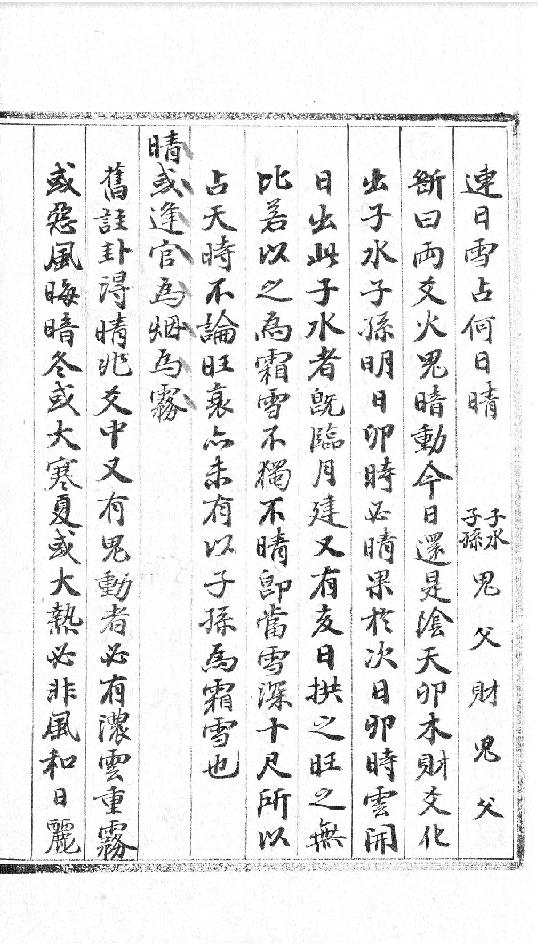 連日雪占何日晴 子水子孫 鬼 父 財 鬼 父
斷曰兩爻火鬼暗動今日還是陰天卯木財爻化
出子水子孫明日卯時必晴果於次日卯時雲開
日出此子水者既臨月建又有亥日拱之旺之無
比若以之為霜雪不獨不晴即當雪深十尺所以
占天時不論旺衰亦未有以子孫為霜雪也
晴或逢官為烟為霧
舊註卦得晴兆爻中又有鬼動者必有濃雲重霧
或惡風晦暗冬或大寒夏或大熱必非風和日麗